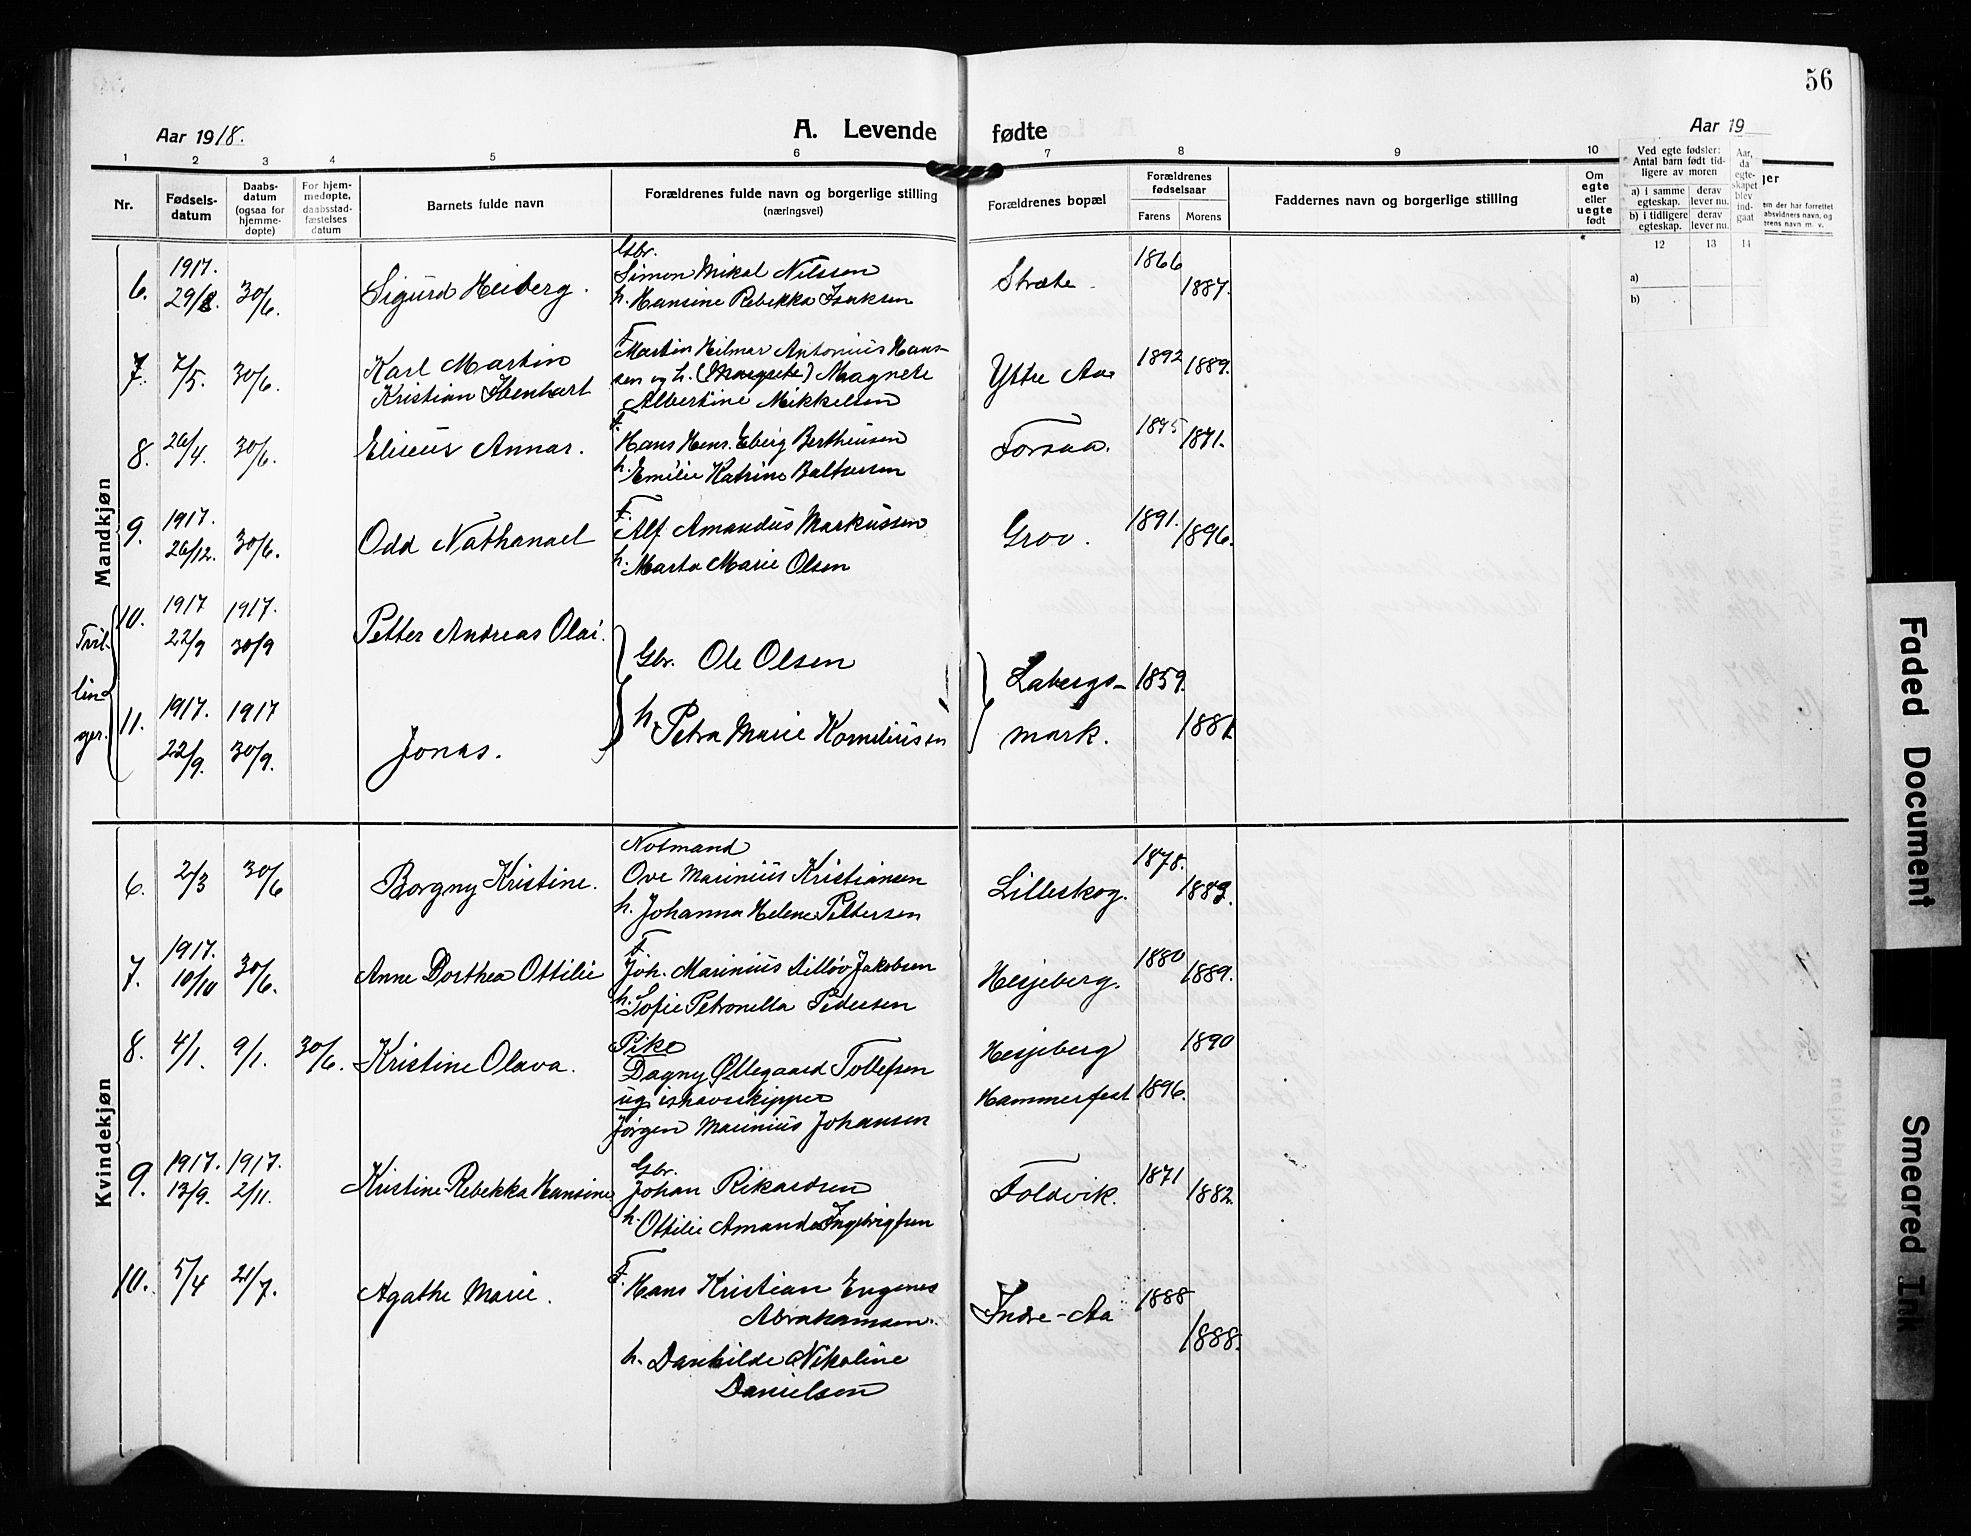 56
Aar 1918.
A. Levende fødte
Aar 19
1 2 3 4 5 6 7 8 9 10 12 13 14
Nr.
Fødsels-
datum
Daabs-
datum
(ogsaa for
hjemme-
døpte)
For hjem-
medøpte,
daabsstad-
fæstelses
datum
Barnets fulde navn
Forældrenes fulde navn og borgerlige stilling
(næringsvei)
Forældrenes bopæl
Forældrenes
fødselsaar
Farens Morens
Faddernes navn og borgerlige stilling
Om
egte
eller
uegte
født
Ved egte fødsler:
Antal barn født tid-
ligere av moren
a) i samme
egteskap.
derav
lever nu.
b) i tidligere
egteskap.
derav
lever nu.
Aar,
da
egte-
skapet
blev
ind-
gaat
a)
b)
Mandkjøn
6. 1917. 29/8. 30/6. Sigurd Heiberg.
Gbr.
Simon Mikal Nilssen
h. Hansine Rebekka Isaksen
Stræte. 1866 1887.
7. 7/5. 30/6. Karl Martin
Kristian Ibenhart
F.
Martin Hilmar Antonius Hans-
sen og h. (Margrete) Magnete
Albertine Mikkelsen
Yttre Aa. 1892 1889.
8. 26/4. 30/6. Eliseus Annar.
F.
Hans Henr. Eberg Bertheusen
h. Emilie Katrine Baltsersen
Forsaa. 1875 1871.
9. 1917. 26/12. 30/6. Odd Nathanael
F.
Alf Amandus Markussen
h. Marta Marie Olsen
Grov. 1891. 1896.
Tvil-
lin-
ger.
10. 1917 22/9 1917. 30/9 Petter Andreas Olai.
Gbr. Ole Olsen
h. Petra Marie Korneliussen
Labergs-
mark. 1859. 1881.
11. 1917. 22/9. 1917 30/9. Jonas.
Kvindekjøn
6. 2/3 30/6 Borgny Kristine.
Notmand
Ove Marinius Kristiansen
h. Johanna Helene Pettersen
Lilleskog. 1878. 1889.
7. 1917. 10/10 30/6. Anne Dorthea Ottilie
F.
Joh. Marinius Ditløv Jakobsen
h. Sofie Petronella Pedersen
Hesjeberg. 1880 1889.
8. 4/1. 9/1. 30/6. Kristine Olava.
Pike
Dagny Ollegaard Tollefsen
ug ishavsskipper
Jørgen Marinius Johansen
Hesjeberg 1890
Hammerfest 1896.
9. 1917. 13/9. 1917. 2/11. Kristine Rebekka Hansine
Gbr.
Johan Rikardsen
h. Ottilie Amanda Ingebrigtsen
Foldvik. 1871 1882.
10. 5/4 21/7. Agathe Marie.
F.
Hans Kristian Eugenes
Abrahamsen.
h. Danhilde Nikoline
Danielsen
Indre-Aa 1888 1888.
Faded Document
Smeared Ink